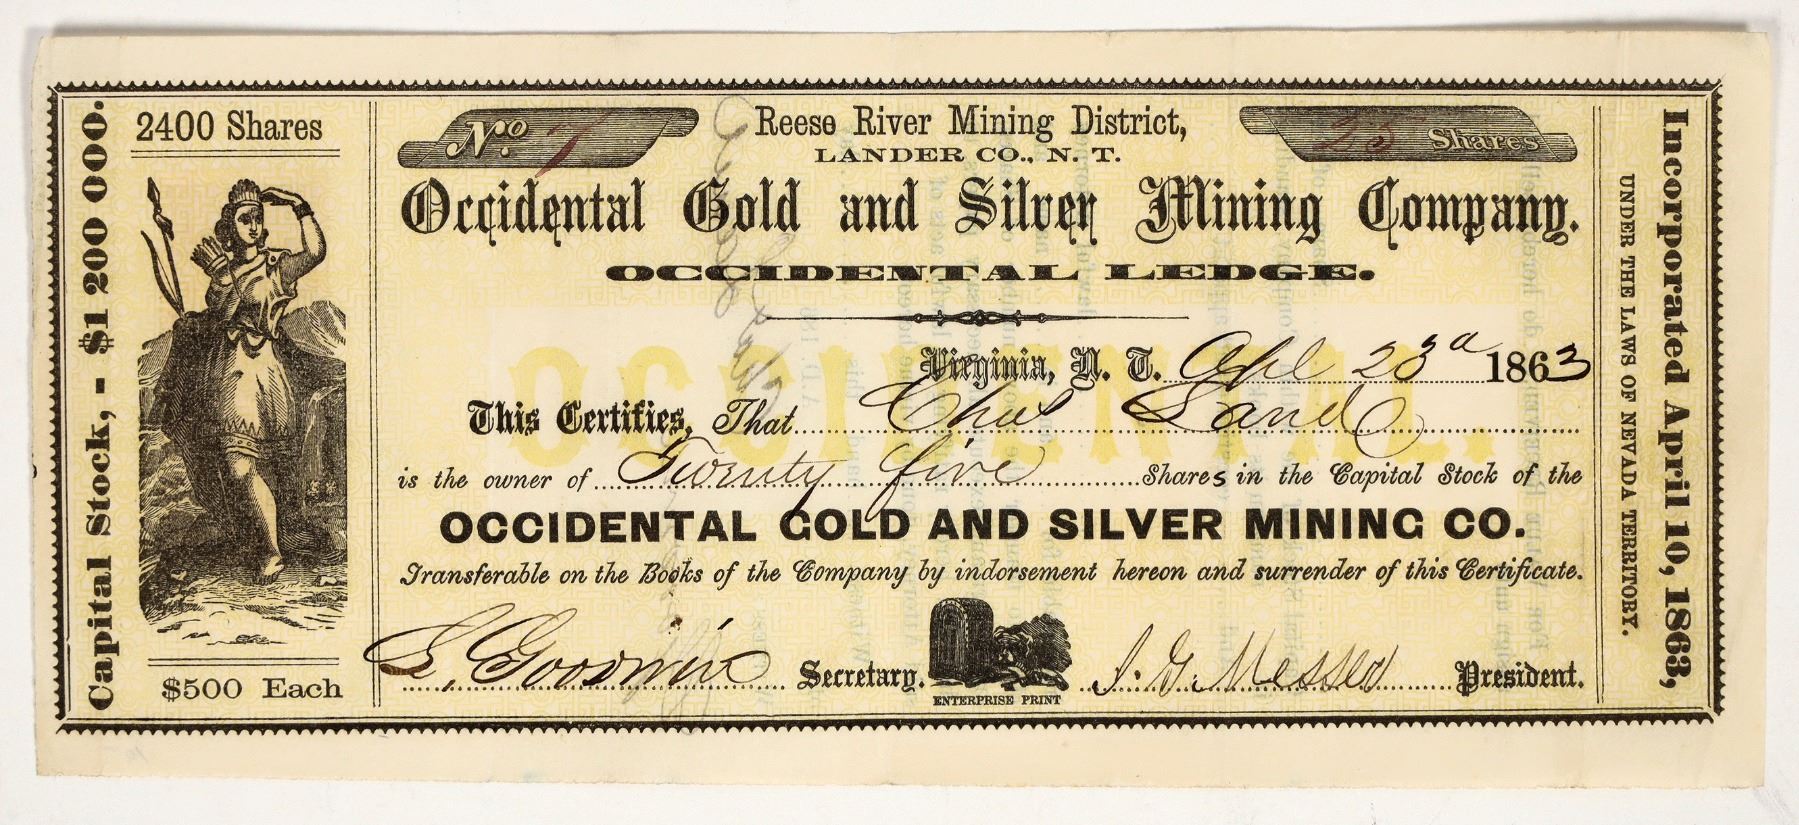 Capital Stock, - $1 200 000.
2400 Shares
$500 Each
No. 7
Reese River Mining District,
LANDER CO., N. T.
25 Shares
Occidental Gold and Silver Mining Company.
OCCIDENTAL LEDGE.
OCCIDENTAL.
Virginia, N. T. Apl 23d 1863
This Certifies, That Chas Land
is the owner of Twenty five Shares in the Capital Stock of the
OCCIDENTAL GOLD AND SILVER MINING CO.
Transferable on the Books of the Company by indorsement hereon and surrender of this Certificate.
L. Goodwin Secretary.
ENTERPRISE PRINT
President.
UNDER THE LAWS OF NEVADA TERRITORY.
Incorporated April 10, 1863,